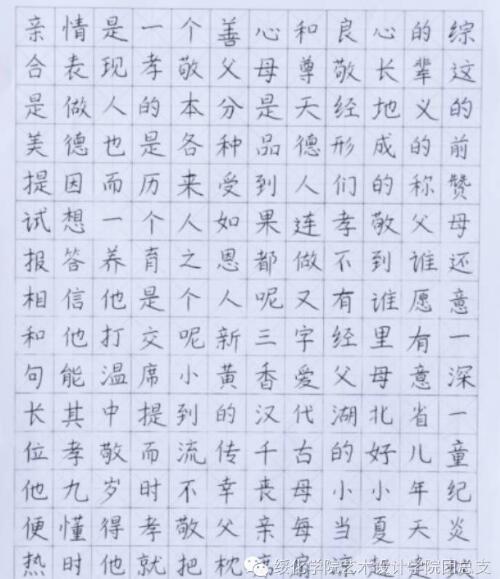 亲情是一个善心和良心的综
合表现孝敬父母尊敬长辈这
是做人的本分是天经地义的
美德也是各种品德形成的前
提因而历来受到人们的称赞
试想一个人如果连孝敬父母
报答养育之恩都做不到谁还
相信他是个人呢又有谁愿意
和他打交呢新三字经里有一
句能温席小黄香爱父母意深
长其中提到的汉代湖北省一
位孝敬而流传千古的好儿童
他九岁时不幸丧母小小年纪
便懂得孝敬父亲每当夏天炎
热时他就把枕
绥化学院艺术设计学院团总支